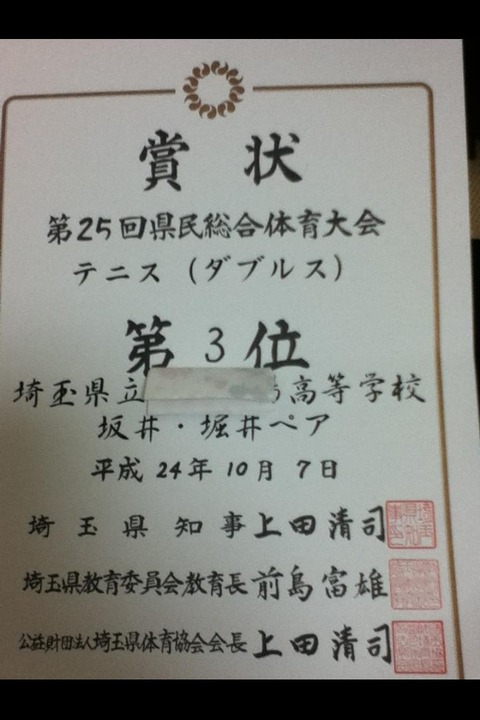 賞状
第25回県民総合体育大会
テニス（ダブルス）
第3位
埼玉県立高等学校
坂井・堀井ペア
平成24年10月7日
埼玉県知事 上田清司
埼玉県教育委員会教育長 前島富雄
公益財団法人埼玉県体育協会会長 上田清司